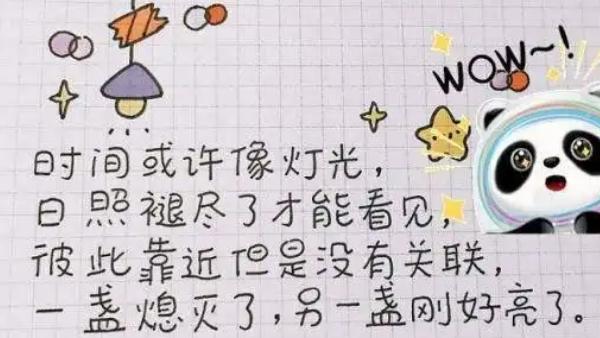 WOW~!
时间或许像灯光，
日照褪尽了才能看见，
彼此靠近但是没有关联，
一盏熄灭了，另一盏刚好亮了。